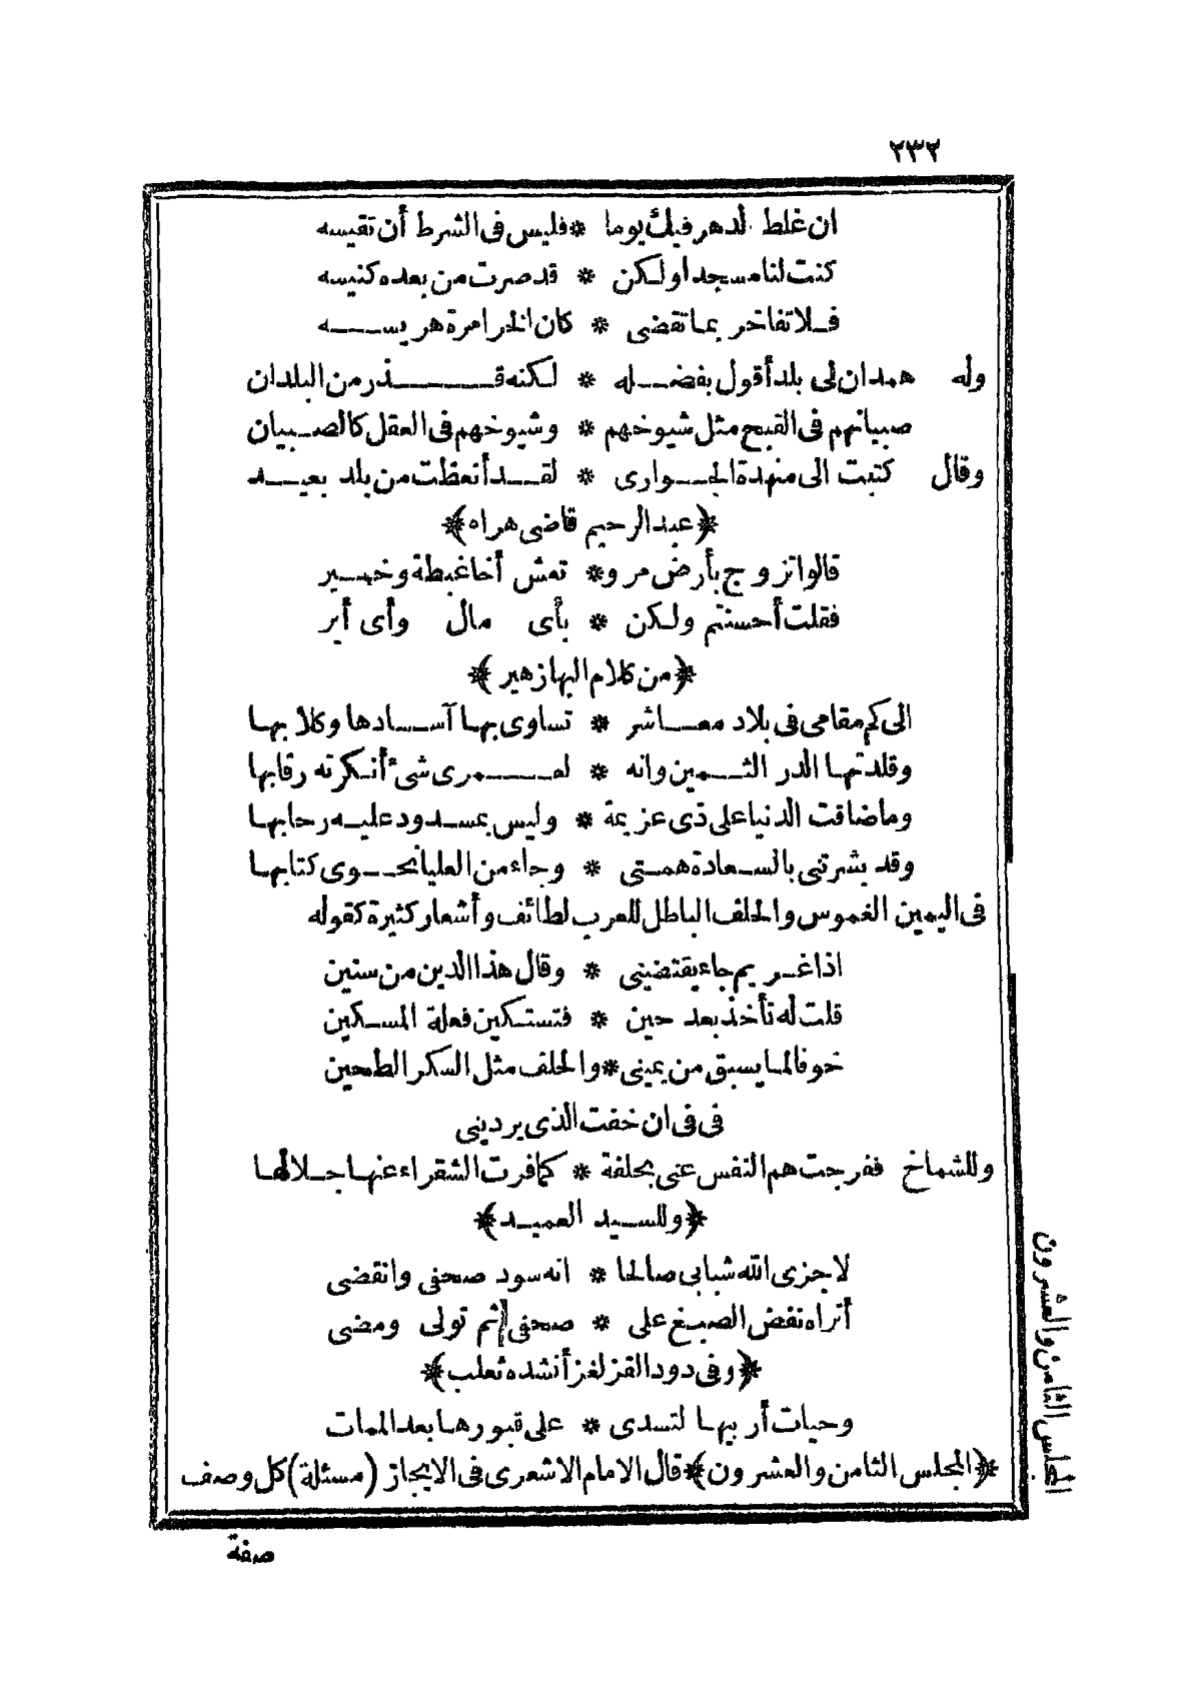 ٢٣٢
ان غلط الدهر فيك يوما * فليس فى الشرط أن تقيسه
كنت لنا مسجدا ولكن * قد صرت من بعده كنيسه
فلا تفاخر بما تقضى * كان الخرا مرة هريسه
وله همدان لى بلد أقول بفضله * لكنه قذر من البلدان
صبيانهم فى القبح مثل شيوخهم * وشيوخهم فى العقل كالصبيان
وقال كتبت الى منهدة الجوارى * لقد أنعظت من بلد بعيد
﴿عبد الرحيم قاضى هراه﴾
قالوا تزوج بأرض مرو * تعش أخا غبطة وخير
فقلت أحسنتم ولكن * بأى مال وأى أير
﴿من كلام البهازهير﴾
الى كم مقامى فى بلاد معاشر * تساوى بها آسادها وكلابها
وقلدتها الدر الثمين وانه * لعمرى شئ أنكرته رقابها
وماضاقت الدنيا على ذى عزيمة * وليس بمسدود عليه رحابها
وقد بشرتنى بالسعادة همتى * وجاء من العليا نحوى كتابها
فى اليمين الغموس والحلف الباطل للعرب لطائف وأشعار كثيرة كقوله
اذا غريم جاء يقتضينى * وقال هذا الدين من سنين
قلت له تأخذ بعد حين * فتستكين فعلة المسكين
خوفا لما يسبق من يمينى * والحلف مثل السكر الطحين
فى فى ان خفت الذى يردينى
وللشماخ ففرجت هم النفس عنى بحلفة * كما فرت الشقراء عنها جلالها
﴿وللسيد العميد﴾
لا جزى الله شبابى صالحا * انه سود صحفى وانقضى
أتراه نفض الصبغ على * صحفى ثم تولى ومضى
﴿وفى دود القز لغز أنشده ثعلب﴾
وحيات أربيها لتسدى * على قبورها بعد الممات
﴿المجلس الثامن والعشرون﴾ قال الامام الاشعرى فى الايجاز (مسئلة) كل وصف
المجلس الثامن والعشرون
صفة